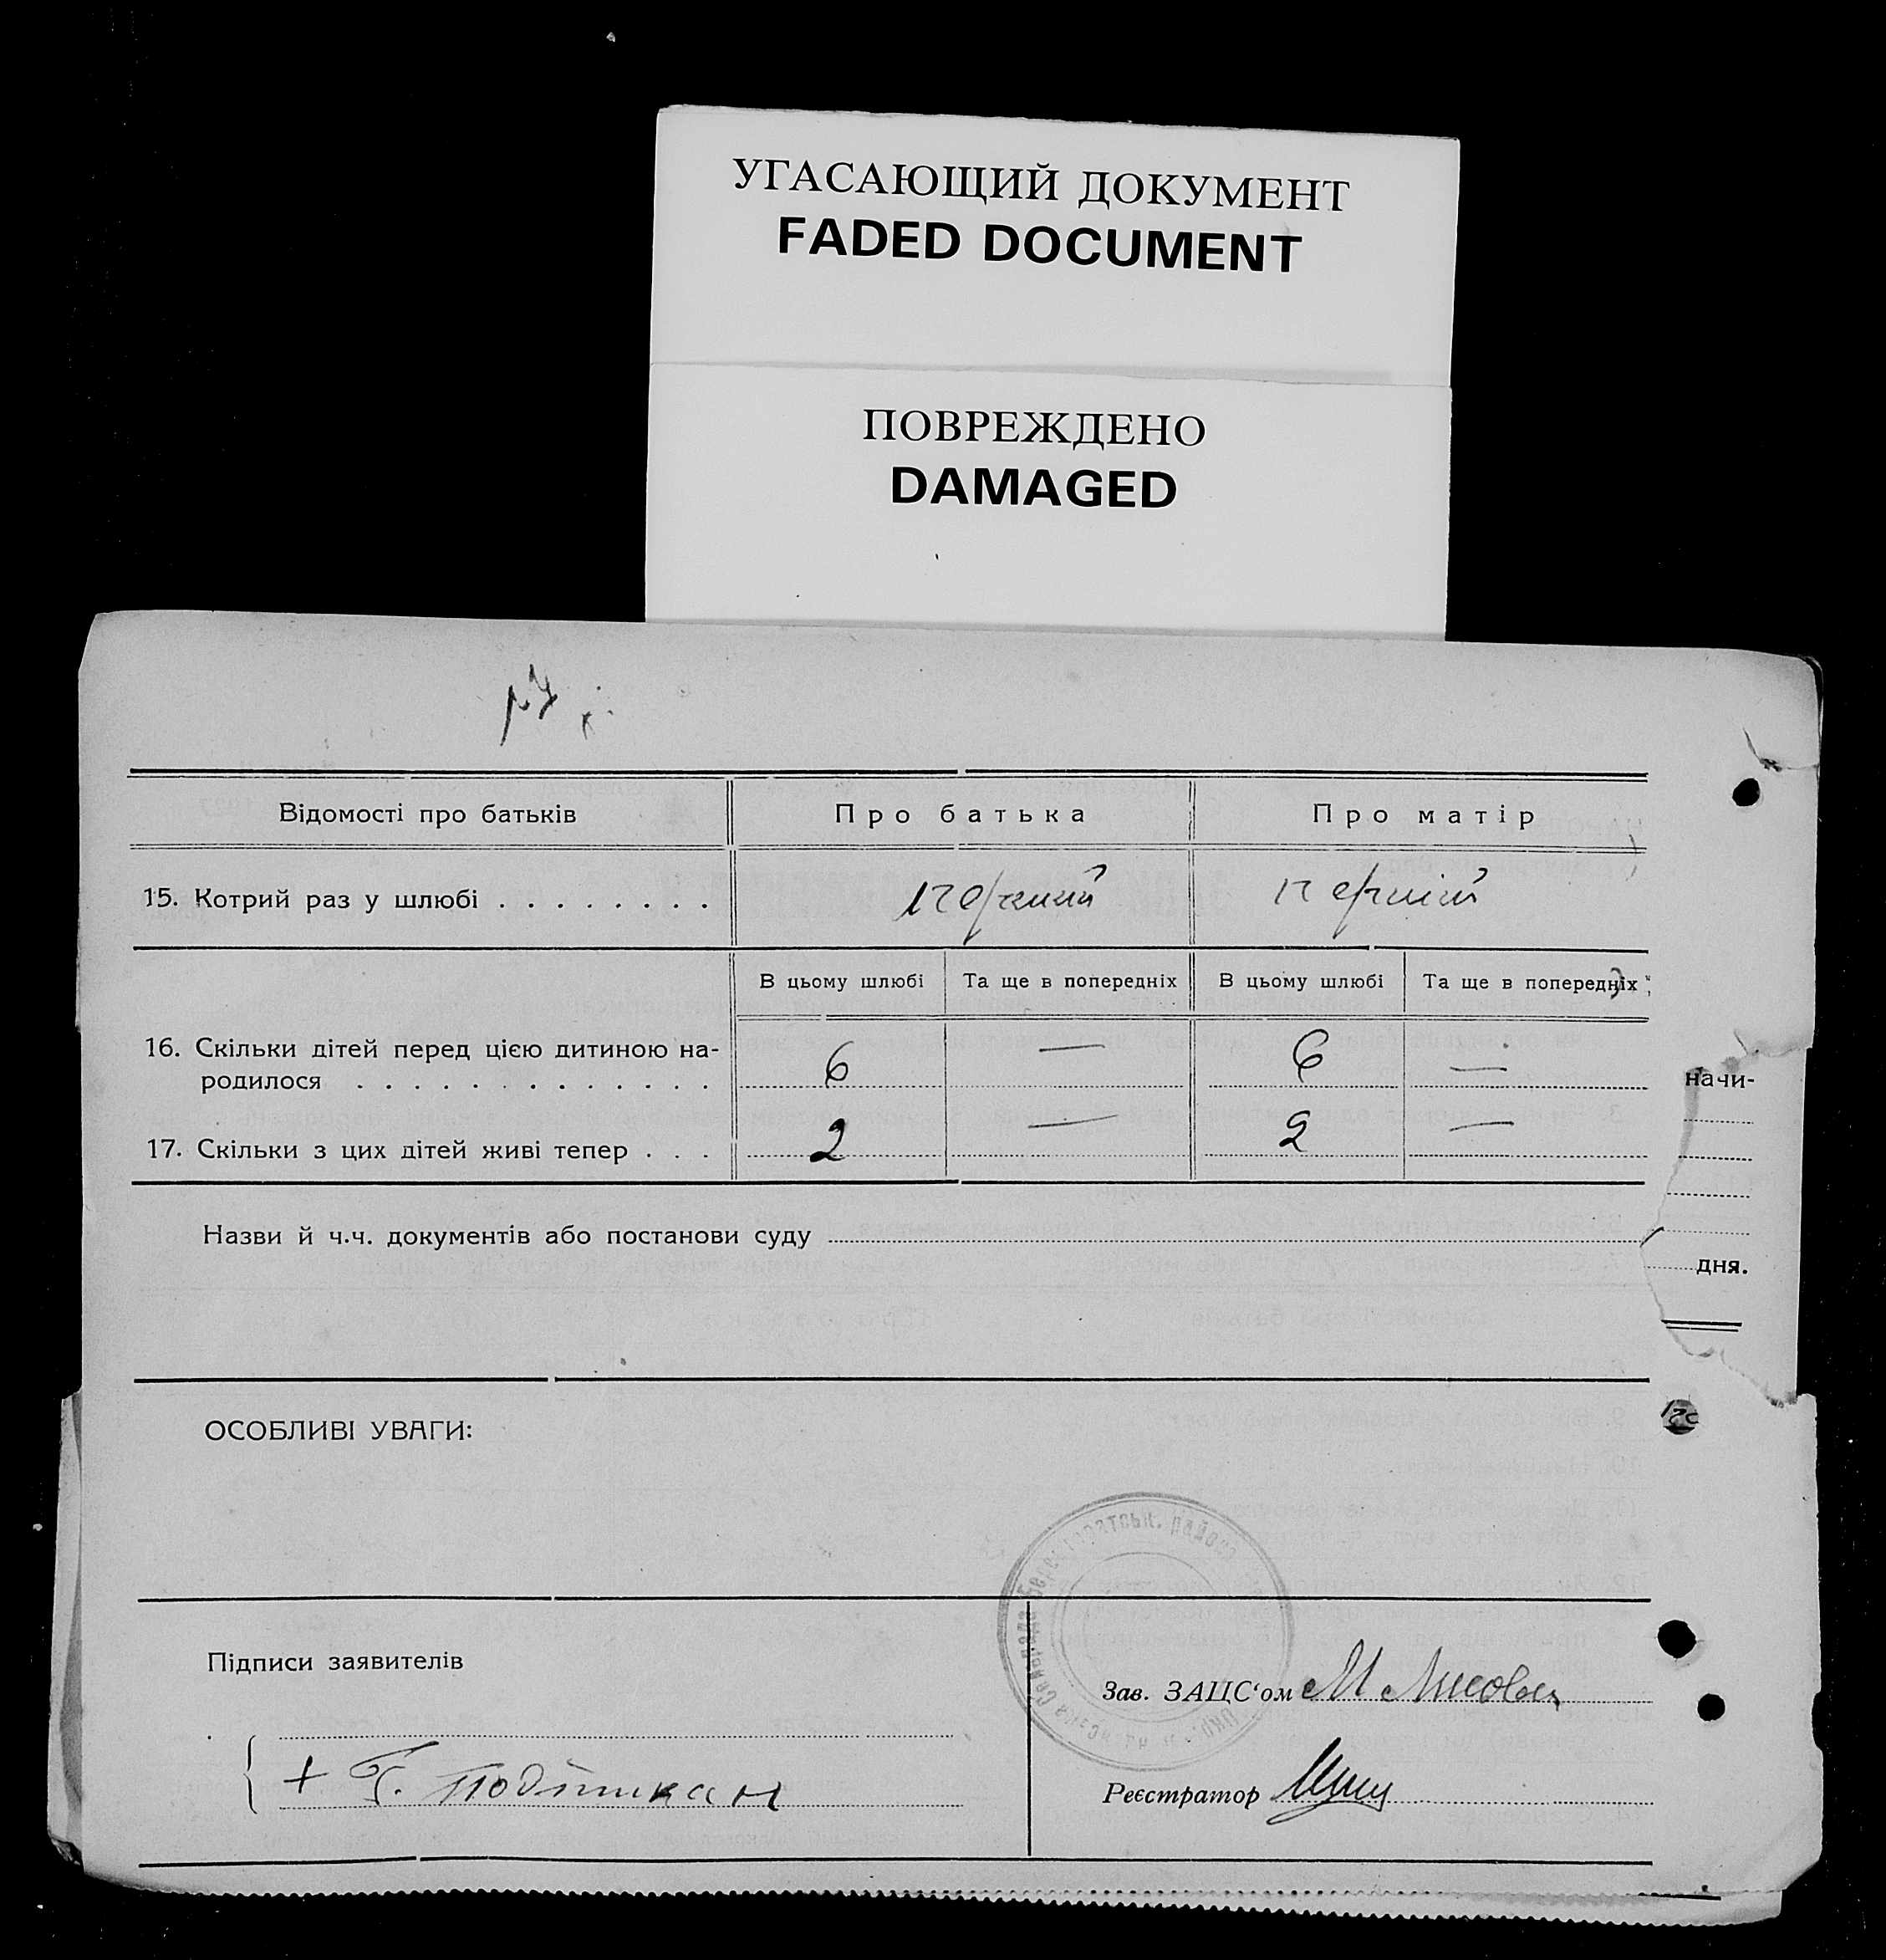 УГАСАЮЩИЙ ДОКУМЕНТ
FADED DOCUMENT
ПОВРЕЖДЕНО
DAMAGED
Відомості про батьків Про батька Про матір
15. Котрий раз у шлюбі . . . . . . . . перший перший
В цьому шлюбі Та ще в попередніх В цьому шлюбі Та ще в попередніх
16. Скільки дітей перед цією дитиною на-
родилося . . . . . . . . . . . . . 6 — 6 —
17. Скільки з цих дітей живі тепер . . . 2 — 2 —
начи-
Назви й ч.ч. документів або постанови суду
дня.
ОСОБЛИВІ УВАГИ:
Підписи заявителів
Зав. ЗАЦС'ом М
+ Г.
Реєстратор